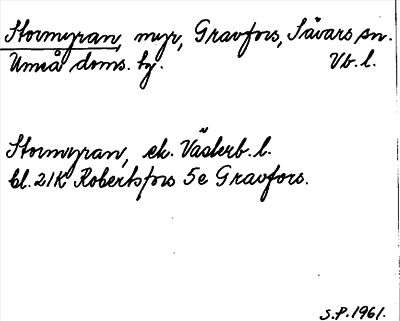 Stormyran, myr, Gravfors, Sävars sn.
Umeå doms. hg. Vb. l.
Stormyran, ek. Västerb. l.
bl. 21K Robertsfors 5e Gravfors.
S.P. 1961.